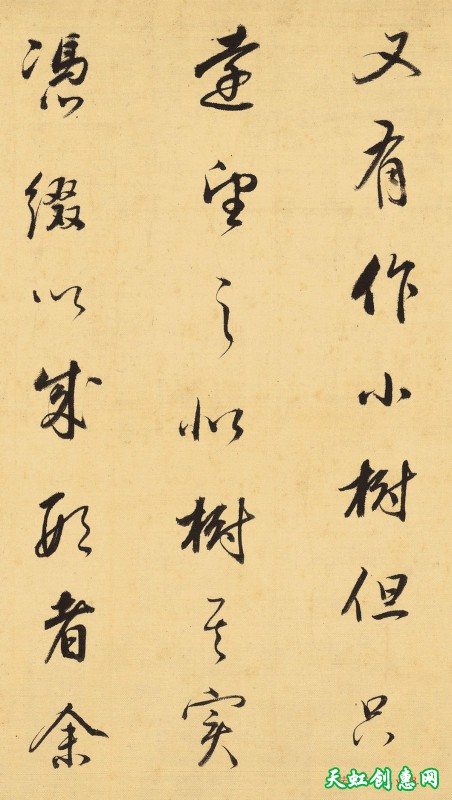 又有作小樹但只
遠望之似樹其實
憑綴以成形者余
天虹创惠网